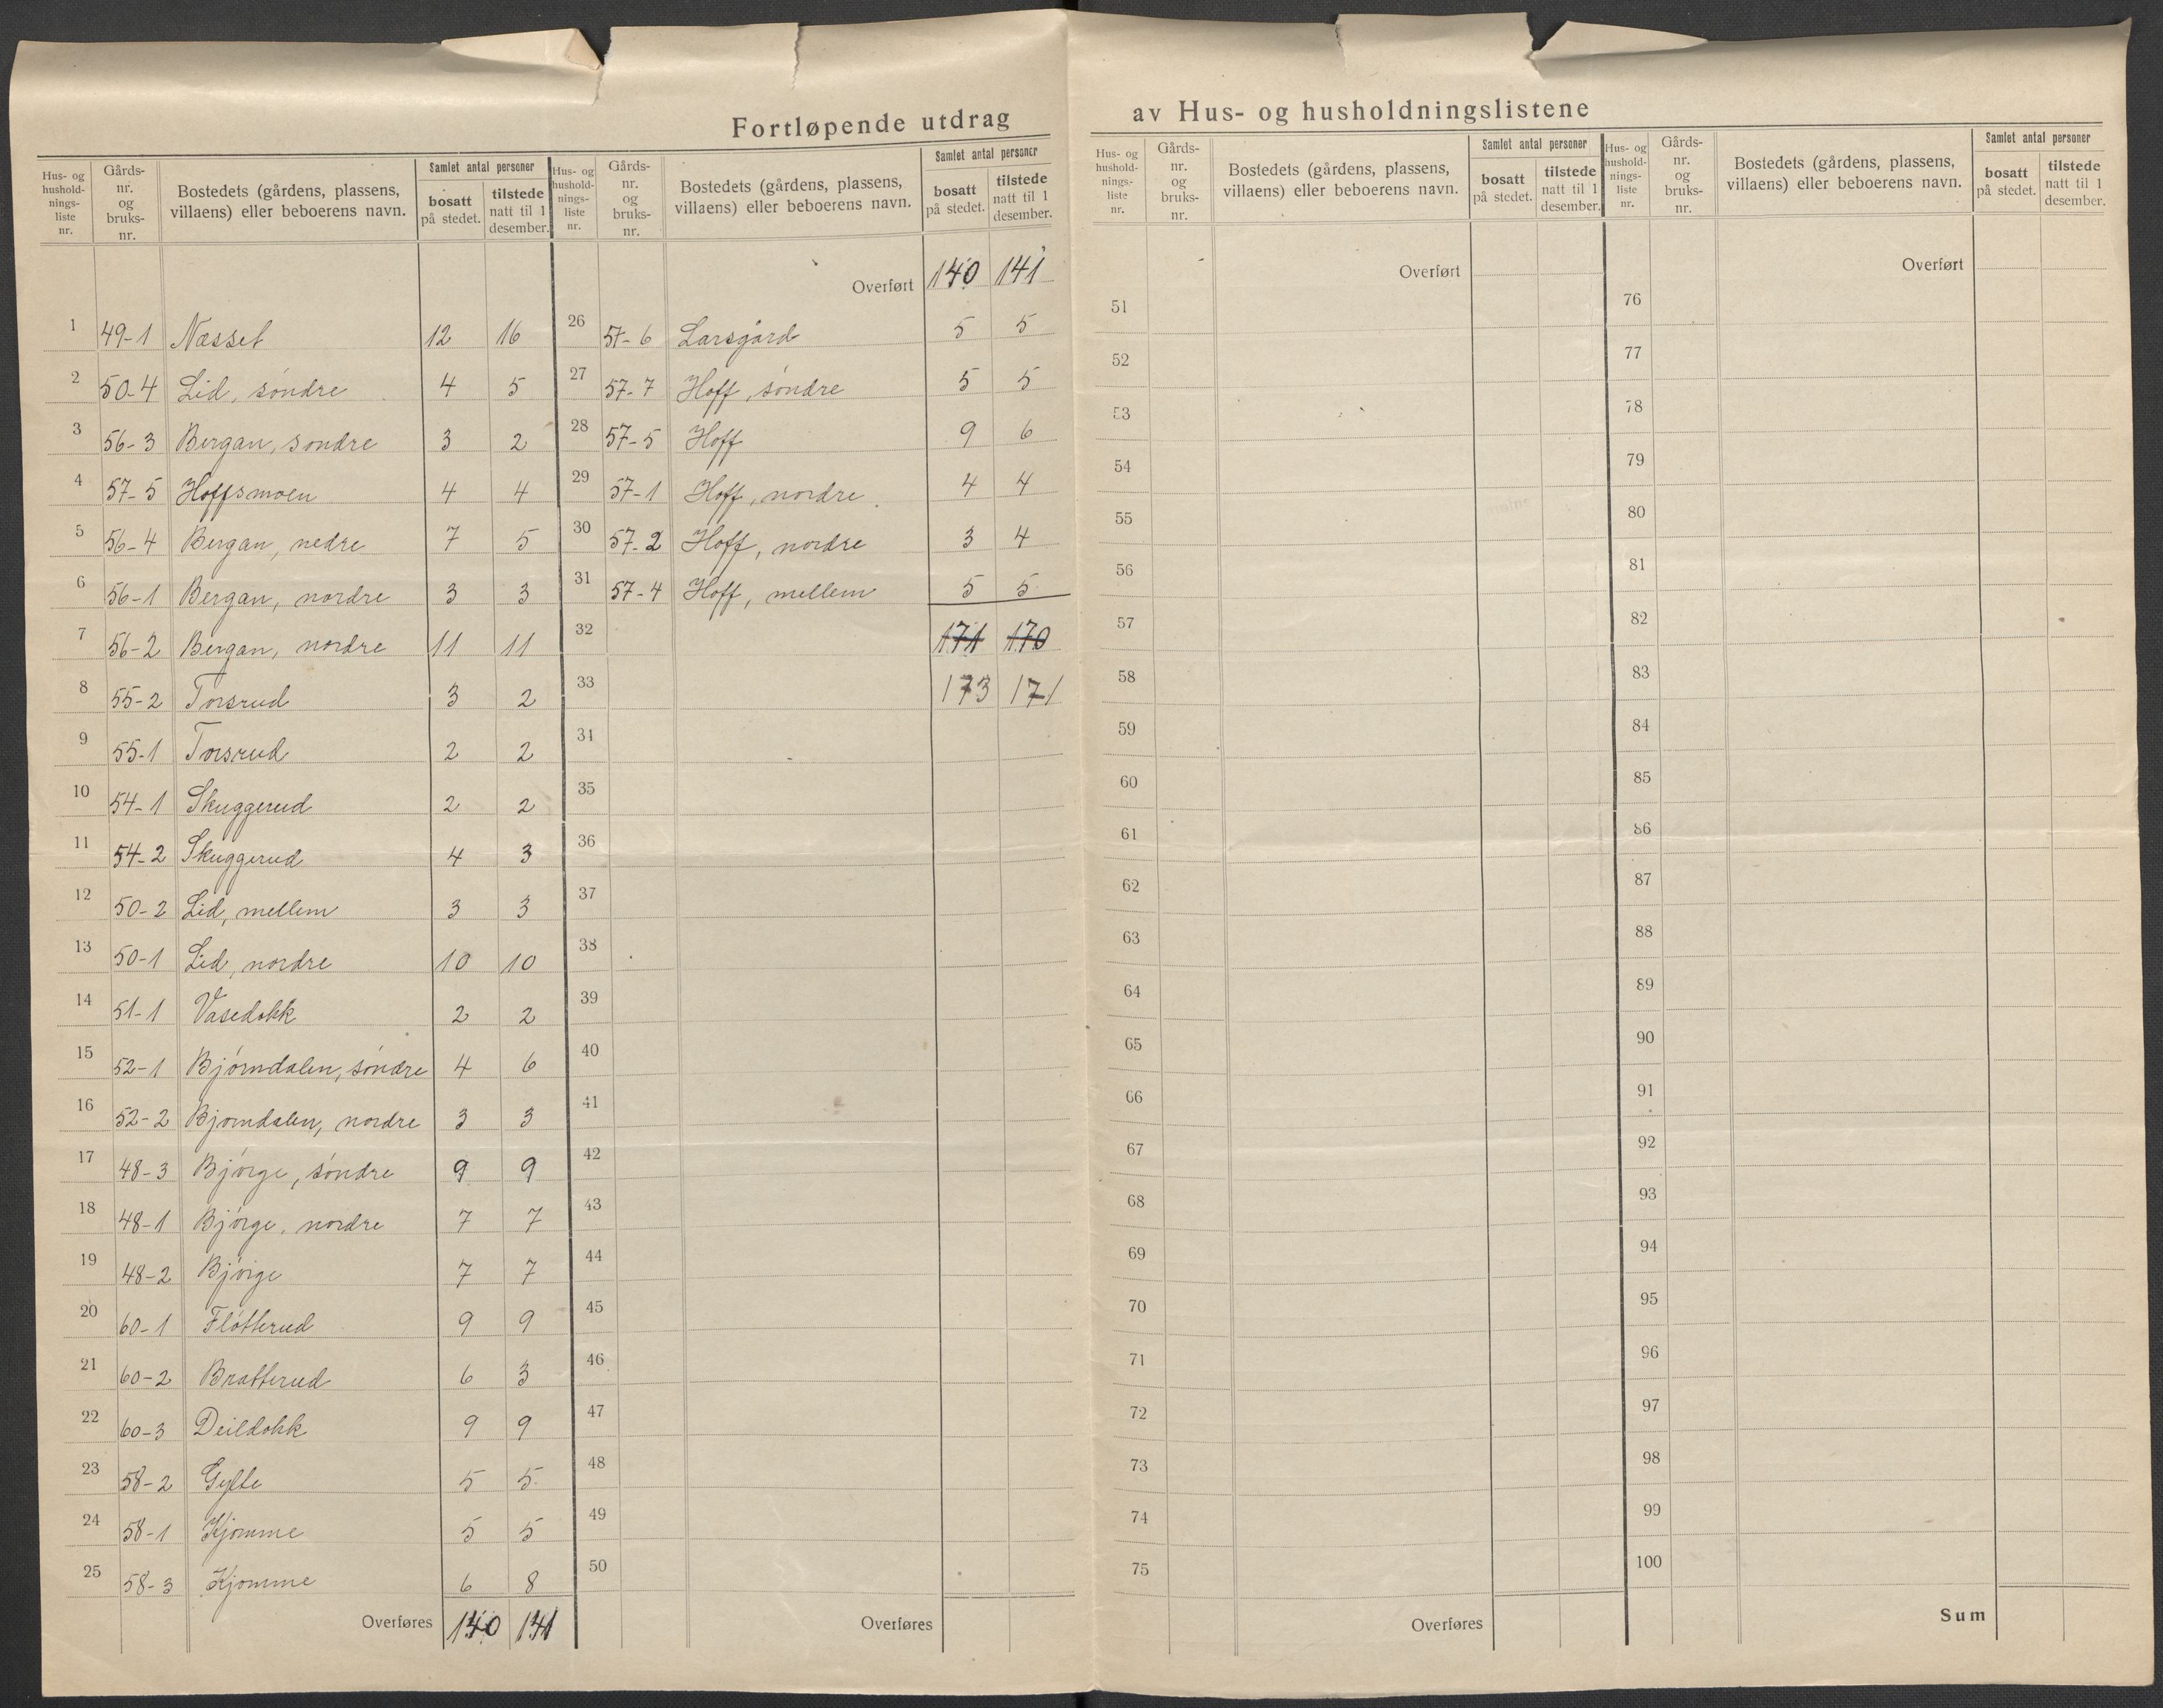 Fortløpende utdrag av Hus- og husholdningslistene
Hus- og hushold-nings-liste nr. | Gårds-nr. og bruks-nr. | Bostedets (gårdens, plassens, villaens) eller beboerens navn. | Samlet antal personer | bosatt på stedet. | tilstede natt til 1 desember.
1 49-1 Næsset 12 16
2 50-4 Lid, søndre 4 5
3 56-3 Bergan, søndre 3 2
4 57-5 Hoffsmoen 4 4
5 56-4 Bergan, nedre 7 5
6 56-1 Bergan, nordre 3 3
7 56-2 Bergan, nordre 11 11
8 55-2 Torsrud 3 2
9 55-1 Torsrud 2 2
10 54-1 Skuggerud 2 2
11 54-2 Skuggerud 4 3
12 50-2 Lid, mellem 3 3
13 50-1 Lid, nordre 10 10
14 51-1 Vasedokk 2 2
15 52-1 Bjørndalen, søndre 4 6
16 52-2 Bjørndalen, nordre 3 3
17 48-3 Bjørge, søndre 9 9
18 48-1 Bjørge, nordre 7 7
19 48-2 Bjørge 7 7
20 60-1 Fløtterud 9 9
21 60-2 Bratterud 6 3
22 60-3 Deildokk 9 9
23 58-2 Gylte 5 5
24 58-1 Kjomme 5 5
25 58-3 Kjomme 6 8
Overføres 140 141
Hus- og hushold-nings-liste nr. | Gårds-nr. og bruks-nr. | Bostedets (gårdens, plassens, villaens) eller beboerens navn. | Samlet antal personer | bosatt på stedet. | tilstede natt til 1 desember.
Overført 140 141
26 57-6 Larsgård 5 5
27 57-7 Hoff, søndre 5 5
28 57-5 Hoff 9 6
29 57-1 Hoff, nordre 4 4
30 57-2 Hoff, nordre 3 4
31 57-4 Hoff, mellem 5 5
32 171 170
33 173 171
34
35
36
37
38
39
40
41
42
43
44
45
46
47
48
49
50
Overføres
Hus- og hushold-nings-liste nr. | Gårds-nr. og bruks-nr. | Bostedets (gårdens, plassens, villaens) eller beboerens navn. | Samlet antal personer | bosatt på stedet. | tilstede natt til 1 desember.
Overført
51
52
53
54
55
56
57
58
59
60
61
62
63
64
65
66
67
68
69
70
71
72
73
74
75
Overføres
Hus- og hushold-nings-liste nr. | Gårds-nr. og bruks-nr. | Bostedets (gårdens, plassens, villaens) eller beboerens navn. | Samlet antal personer | bosatt på stedet. | tilstede natt til 1 desember.
Overført
76
77
78
79
80
81
82
83
84
85
86
87
88
89
90
91
92
93
94
95
96
97
98
99
100
Sum